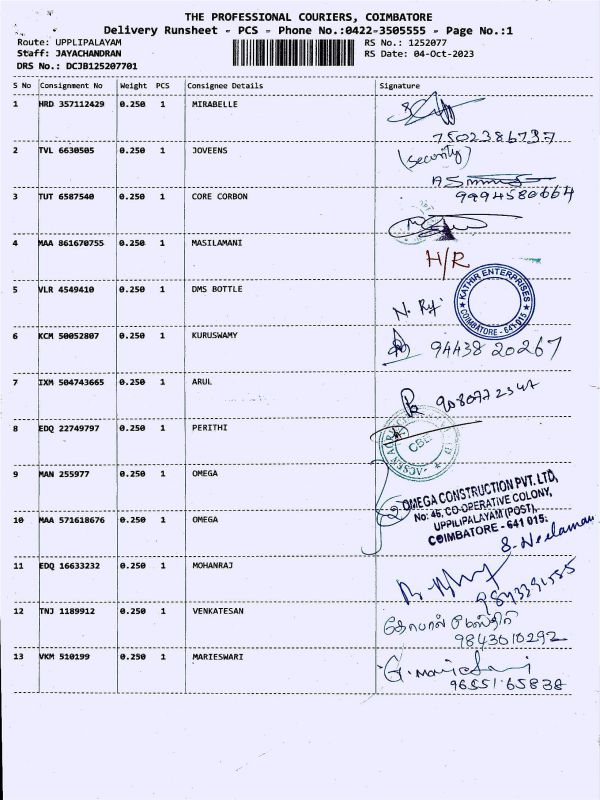 THE PROFESSIONAL COURIERS, COIMBATORE
Delivery Runsheet - PCS - Phone No.:0422-3505555 - Page No.:1
Route: UPPLIPALAYAM RS No.: 1252077
Staff: JAYACHANDRAN RS Date: 04-Oct-2023
DRS No.: DCJB125207701
S No Consignment No Weight PCS Consignee Details Signature
1 HRD 357112429 0.250 1 MIRABELLE
7502386737
2 TVL 6630505 0.250 1 JOVEENS (Security)
3 TUT 6587540 0.250 1 CORE CORBON 9994580664
4 MAA 861670755 0.250 1 MASILAMANI H/R
5 VLR 4549410 0.250 1 DMS BOTTLE
KATHIR ENTERPRISES
COIMBATORE - 641 015
6 KCM 50052807 0.250 1 KURUSWAMY 94438 20267
7 IXM 504743665 0.250 1 ARUL 9080772347
8 EDQ 22749797 0.250 1 PERITHI
9 MAN 255977 0.250 1 OMEGA
OMEGA CONSTRUCTION PVT. LTD,
No: 45, CO-OPERATIVE COLONY,
UPPILIPALAYAM (POST),
COIMBATORE - 641 015.
10 MAA 571618676 0.250 1 OMEGA
11 EDQ 16633232 0.250 1 MOHANRAJ
12 TNJ 1189912 0.250 1 VENKATESAN
9843010292
13 VKM 510199 0.250 1 MARIESWARI
96551.65838